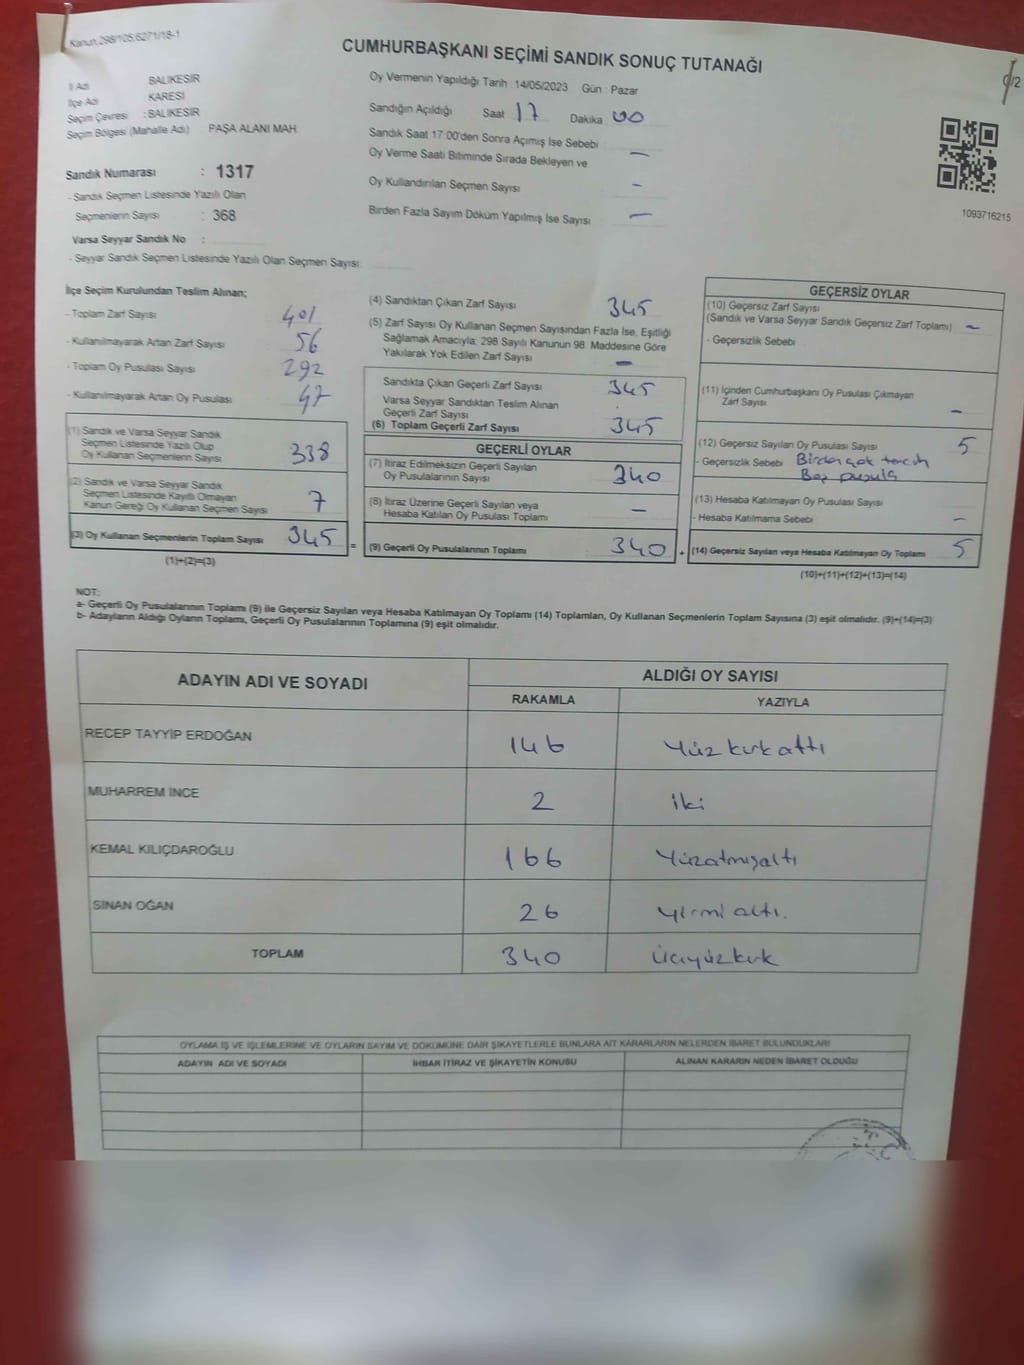 Kanun:298/105,6271/18-1
CUMHURBAŞKANI SEÇİMİ SANDIK SONUÇ TUTANAĞI
İl Adı BALIKESİR
İlçe Adı KARESİ
Seçim Çevresi : BALIKESİR
Seçim Bölgesi (Mahalle Adı) PAŞA ALANI MAH.
Sandık Numarası : 1317
- Sandık Seçmen Listesinde Yazılı Olan
Seçmenlerin Sayısı : 368
Varsa Seyyar Sandık No :
- Seyyar Sandık Seçmen Listesinde Yazılı Olan Seçmen Sayısı:
Oy Vermenin Yapıldığı Tarih : 14/05/2023 Gün : Pazar
Sandığın Açıldığı Saat 17 Dakika 00
Sandık Saat 17:00'den Sonra Açılmış İse Sebebi : —
Oy Verme Saati Bitiminde Sırada Bekleyen ve
Oy Kullandırılan Seçmen Sayısı –
Birden Fazla Sayım Döküm Yapılmış İse Sayısı —
1093716215
İlçe Seçim Kurulundan Teslim Alınan;
- Toplam Zarf Sayısı 401
- Kullanılmayarak Artan Zarf Sayısı 56
- Toplam Oy Pusulası Sayısı 292
- Kullanılmayarak Artan Oy Pusulası 47
(1) Sandık ve Varsa Seyyar Sandık
Seçmen Listesinde Yazılı Olup
Oy Kullanan Seçmenlerin Sayısı 338
(2) Sandık ve Varsa Seyyar Sandık
Seçmen Listesinde Kayıtlı Olmayan
Kanun Gereği Oy Kullanan Seçmen Sayısı 7
(3) Oy Kullanan Seçmenlerin Toplam Sayısı 345 =
(1)+(2)=(3)
(4) Sandıktan Çıkan Zarf Sayısı 345
(5) Zarf Sayısı Oy Kullanan Seçmen Sayısından Fazla İse, Eşitliği
Sağlamak Amacıyla; 298 Sayılı Kanunun 98. Maddesine Göre
Yakılarak Yok Edilen Zarf Sayısı —
Sandıkta Çıkan Geçerli Zarf Sayısı 345
Varsa Seyyar Sandıktan Teslim Alınan
Geçerli Zarf Sayısı
(6) Toplam Geçerli Zarf Sayısı 345
GEÇERLİ OYLAR
(7) İtiraz Edilmeksizin Geçerli Sayılan
Oy Pusulalarının Sayısı 340
(8) İtiraz Üzerine Geçerli Sayılan veya
Hesaba Katılan Oy Pusulası Toplamı —
(9) Geçerli Oy Pusulalarının Toplamı 340 +
GEÇERSİZ OYLAR
(10) Geçersiz Zarf Sayısı
(Sandık ve Varsa Seyyar Sandık Geçersiz Zarf Toplamı) –
- Geçersizlik Sebebi
(11) İçinden Cumhurbaşkanı Oy Pusulası Çıkmayan
Zarf Sayısı –
(12) Geçersiz Sayılan Oy Pusulası Sayısı 5
- Geçersizlik Sebebi Birden çok tercih
Boş pusula
(13) Hesaba Katılmayan Oy Pusulası Sayısı
- Hesaba Katılmama Sebebi –
(14) Geçersiz Sayılan veya Hesaba Katılmayan Oy Toplamı 5
(10)+(11)+(12)+(13)=(14)
NOT:
a- Geçerli Oy Pusulalarının Toplamı (9) ile Geçersiz Sayılan veya Hesaba Katılmayan Oy Toplamı (14) Toplamları, Oy Kullanan Seçmenlerin Toplam Sayısına (3) eşit olmalıdır. (9)+(14)=(3)
b- Adayların Aldığı Oyların Toplamı, Geçerli Oy Pusulalarının Toplamına (9) eşit olmalıdır.
ADAYIN ADI VE SOYADI ALDIĞI OY SAYISI
RAKAMLA YAZIYLA
RECEP TAYYİP ERDOĞAN 146 Yüzkırkaltı
MUHARREM İNCE 2 iki
KEMAL KILIÇDAROĞLU 166 Yüzatmışaltı
SİNAN OĞAN 26 yirmialtı.
TOPLAM 340 Üçyüzkırk
OYLAMA İŞ VE İŞLEMLERİNE VE OYLARIN SAYIM VE DÖKÜMÜNE DAİR ŞİKAYETLERLE BUNLARA AİT KARARLARIN NELERDEN İBARET BULUNDUKLARI
ADAYIN ADI VE SOYADI İHBAR İTİRAZ VE ŞİKAYETİN KONUSU ALINAN KARARIN NEDEN İBARET OLDUĞU
T.C.